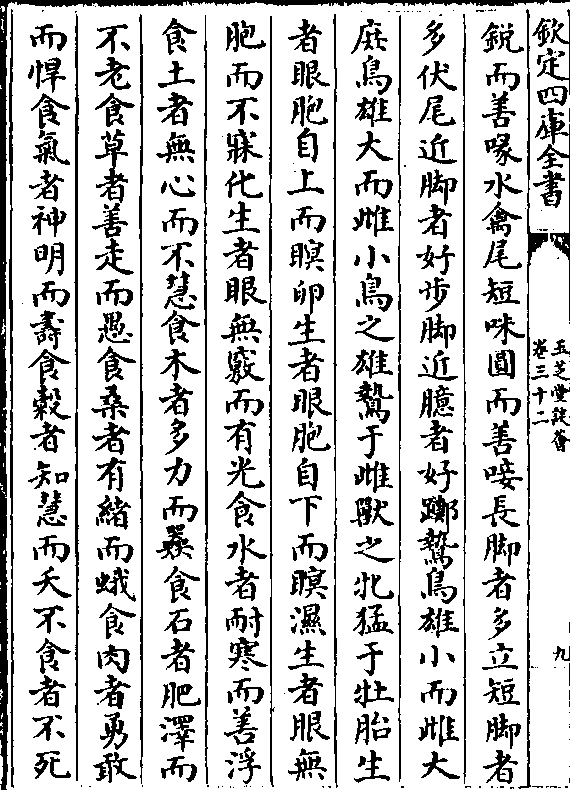 欽定四庫全書
玉芝堂談薈
卷三十二
九
鋭而善啄水禽尾短咮圓而善唼長脚者多立短脚者
多伏尾近脚者好步脚近臆者好躑鷙鳥雄小而雌大
庶鳥雄大而雌小鳥之雄鷙于雌獸之牝猛于牡胎生
者眼胞自上而瞑卵生者眼胞自下而瞑濕生者眼無
胞而不寐化生者眼無竅而有光食水者耐寒而善浮
食土者無心而不慧食木者多力而𡚤食石者肥澤而
不老食草者善走而愚食桑者有緒而蛾食肉者勇敢
而悍食氣者神明而壽食糓者知慧而夭不食者不死